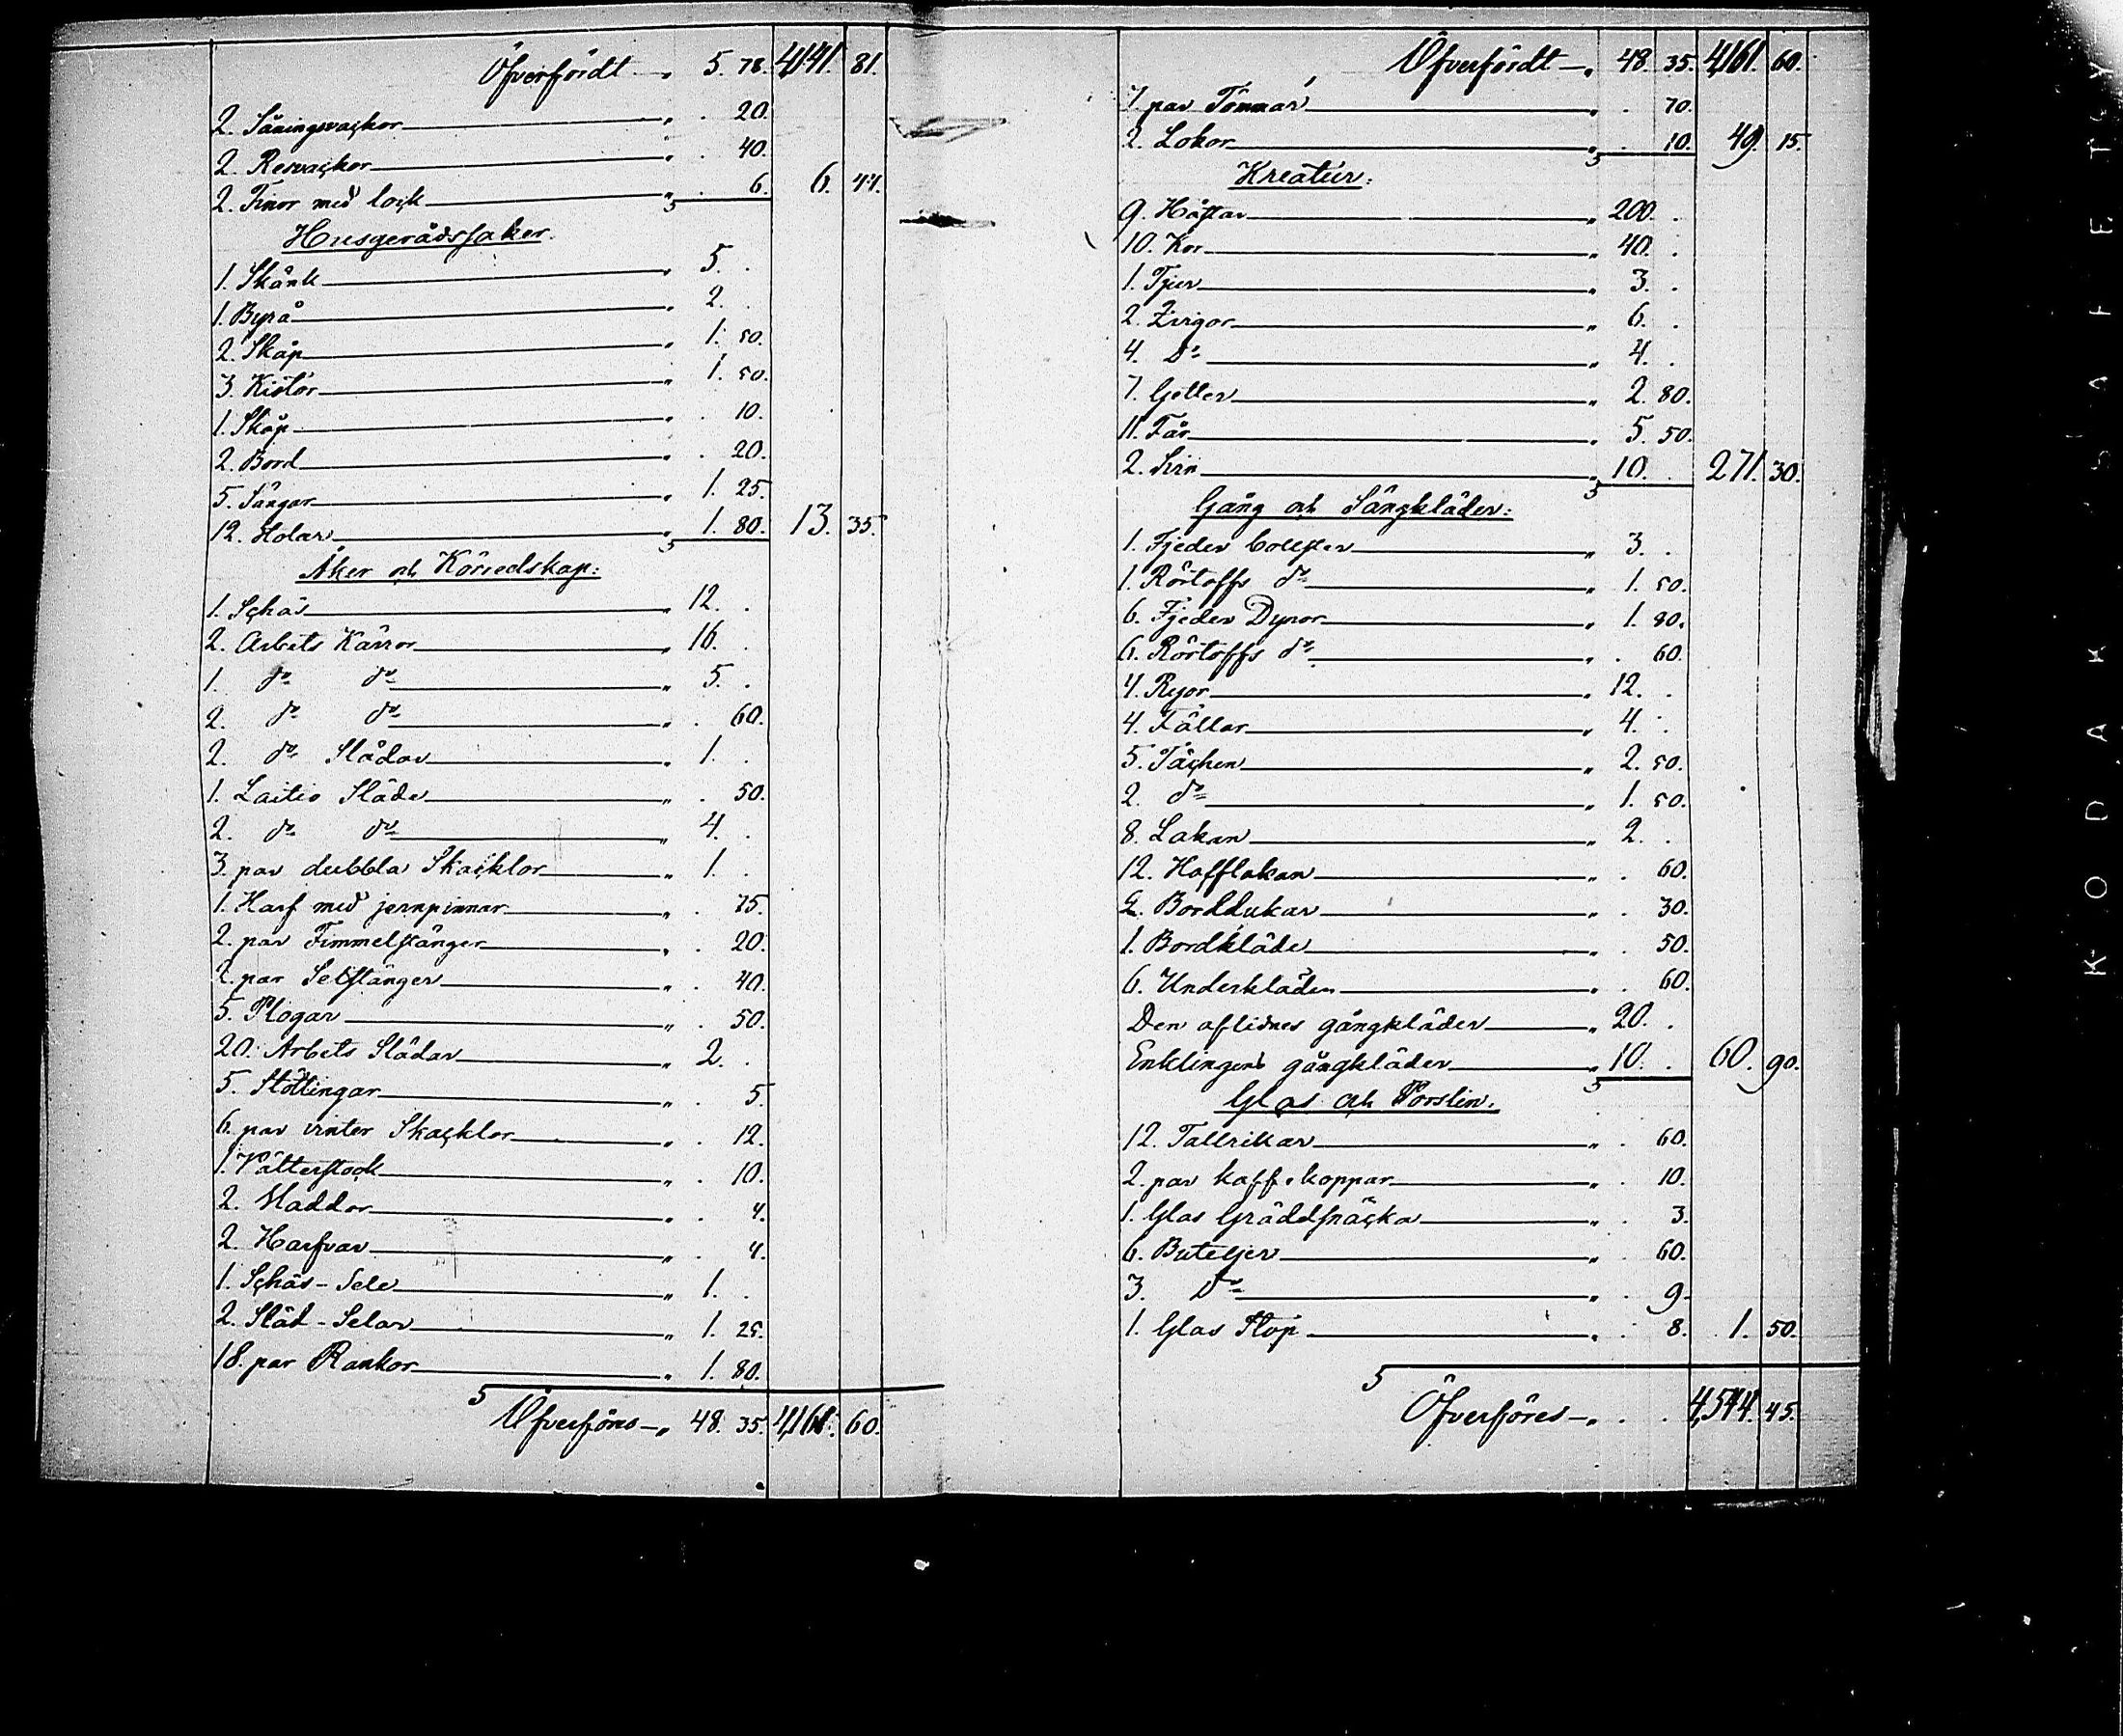 Öfverfördt — „ 5. 78. 4,141. 81.
2. Såningsvackor „ . 20.
2. Resvackor „ . 40.
2. Finor med lock „ . 6. 6. 44.
Husgerådssaker.
1. Skänk „ 5. .
1. Byrå „ 2. .
2. Skåp „ 1. 50.
3. Kistor „ 1. 50.
1. Skåp „ . 10.
2. Bord „ . 20.
5. Sängar „ 1. 25.
12. Stolar „ 1. 80. 13. 35.
Åker och Köredskap:
1. Schäs „ 12. .
2. Arbets Kärror „ 16. .
1. do do „ 5. .
2. do do „ . 60.
2. do Slädar „ 1. .
1. Laitio Släde „ . 50.
2. do do „ 4. .
3. par dubbla Skacklor „ 1. .
1. Harf med jernpinnar „ . 75.
2. par Fimmelstänger „ . 20.
2. par Selstänger „ . 40.
5. Plogar „ . 50.
20. Arbets Slädar „ 2. .
5. Stöttingar „ . 5.
6. par vinter Skacklor „ . 12.
1. Välterstock „ . 10.
2. Hladdor „ . 4.
2. Harfvar „ . 4.
1. Schäs-Sele „ 1. .
2. Släd-Selar „ 1. 25.
18. par Rankor „ 1. 80.
Öfverföres — „ 48. 35. 4,161. 60.
Öfverfördt — „ 48. 35. 4,161. 60.
7. par Tömmar „ . 70.
2. Lokor „ . 10. 49. 15.
Kreatur:
9. Hästar „ 200. .
10. Kor „ 40. .
1. Tjur „ 3. .
2. Qvigor „ 6. .
4. Do „ 4. .
7. Getter „ 2. 80.
11. Får „ 5. 50.
2. Svin „ 10. . 271. 30.
Gång och Sängkläder:
1. Fjeder bolster „ 3. .
1. Rörtoffs do „ 1. 50.
6. Fjeder Dynor „ 1. 80.
6. Rörtoffs do „ . 60.
4. Ryor „ 12. .
4. Fällar „ 4. .
5. Täcken „ 2. 50.
2. do „ 1. 50.
8. Lakan „ 2. .
12. Hafflakan „ . 60.
2. Borddukar „ . 30.
1. Bordkläde „ . 50.
6. Underkläden „ . 60.
Den aflidnes gångkläder „ 20. .
Enklingens gångkläder „ 10. . 60. 90.
Glas och Porslin.
12. Tallrikar „ . 60.
2. par kaffekoppar „ . 10.
1. Glas Gräddsnäcka „ . 3.
6. Buteljer „ . 60.
3. Do „ . 9.
1. Glas Stop „ . 8. 1. 50.
Öfverföres — „ . . 4,544. 45.
KODAK SAFETY